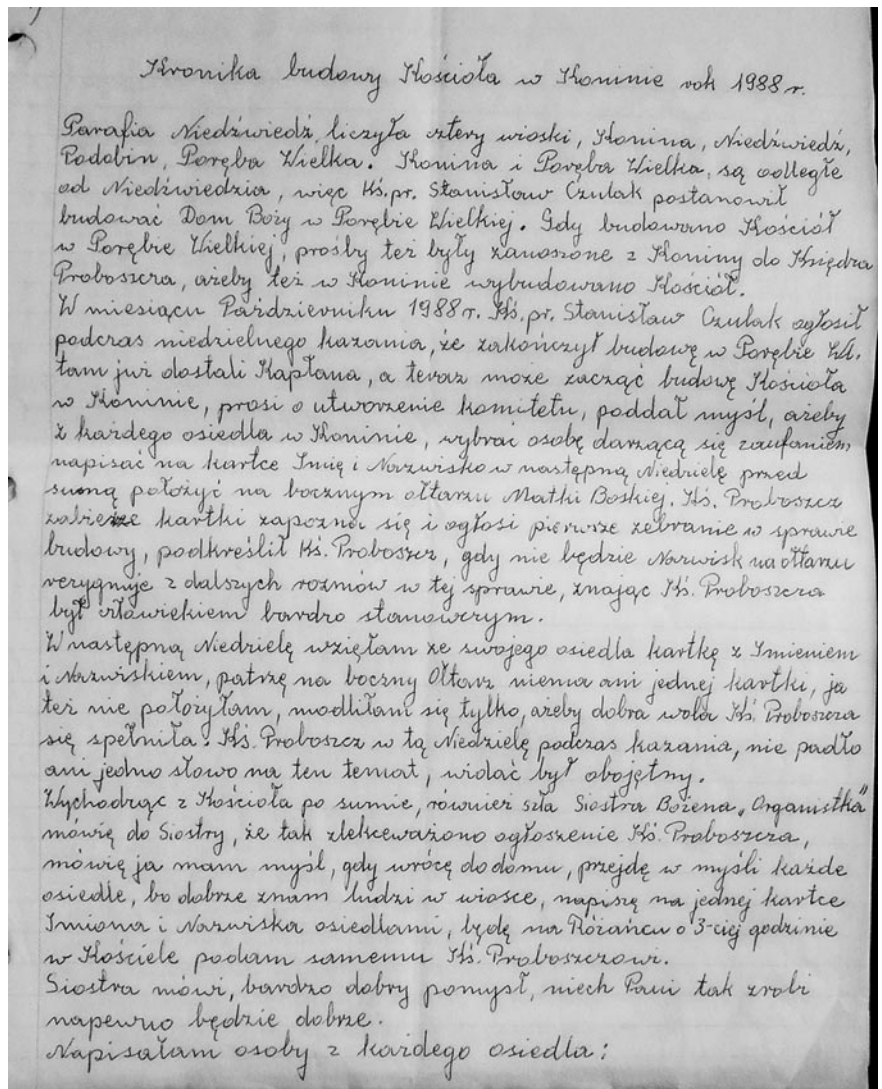 Kronika budowy Kościoła w Koninie rok 1988 r.
Parafia Niedźwiedź, liczyła cztery wioski, Konina, Niedźwiedź,
Podobin, Poręba Wielka. Konina i Poręba Wielka, są odległe
od Niedźwiedzia, więc Ks. pr. Stanisław Czulak postanowił
budować Dom Boży w Porębie Wielkiej. Gdy budowano Kościół
w Porębie Wielkiej, prośby też były zanoszone z Koniny do Księdza
Proboszcza, ażeby też w Koninie wybudowano Kościół.
W miesiącu Październiku 1988 r. Ks. pr. Stanisław Czulak ogłosił
podczas niedzielnego kazania, że zakończył budowę w Porębie Wl.
tam już dostali Kapłana, a teraz może zacząć budowę Kościoła
w Koninie, prosi o utworzenie komitetu, poddał myśl, ażeby
z każdego osiedla w Koninie, wybrać osobę darzącą się zaufaniem,
napisać na kartce Imię i Nazwisko w następną Niedzielę przed
sumą położyć na bocznym ołtarzu Matki Boskiej. Ks. Proboszcz
zabierze kartki zapozna się i ogłosi pierwsze zebranie w sprawie
budowy, podkreślił Ks. Proboszcz, gdy nie będzie Nazwisk na ołtarzu
rezygnuje z dalszych rozmów w tej sprawie, znając Ks. Proboszcza
był człowiekiem bardzo stanowczym.
W następną Niedzielę wzięłam ze swojego osiedla kartkę z Imieniem
i Nazwiskiem, patrzę na boczny Ołtarz niema ani jednej kartki, ja
też nie położyłam, modliłam się tylko, ażeby dobra wola Ks. Proboszcza
się spełniła. Ks. Proboszcz w tą Niedzielę podczas kazania, nie padło
ani jedno słowo na ten temat, widać był obojętny.
Wychodząc z Kościoła po sumie, również szła Siostra Bożena „Organistka"
mówię do Siostry, że tak zlekceważono ogłoszenie Ks. Proboszcza,
mówię ja mam myśl, gdy wrócę do domu, przejdę w myśli każde
osiedle, bo dobrze znam ludzi w wiosce, napiszę na jednej kartce
Imiona i Nazwiska osiedlami, będę na Różańcu o 3-ciej godzinie
w Kościele podam samemu Ks. Proboszczowi.
Siostra mówi, bardzo dobry pomysł, niech Pani tak zrobi
napewno będzie dobrze.
Napisałam osoby z każdego osiedla: